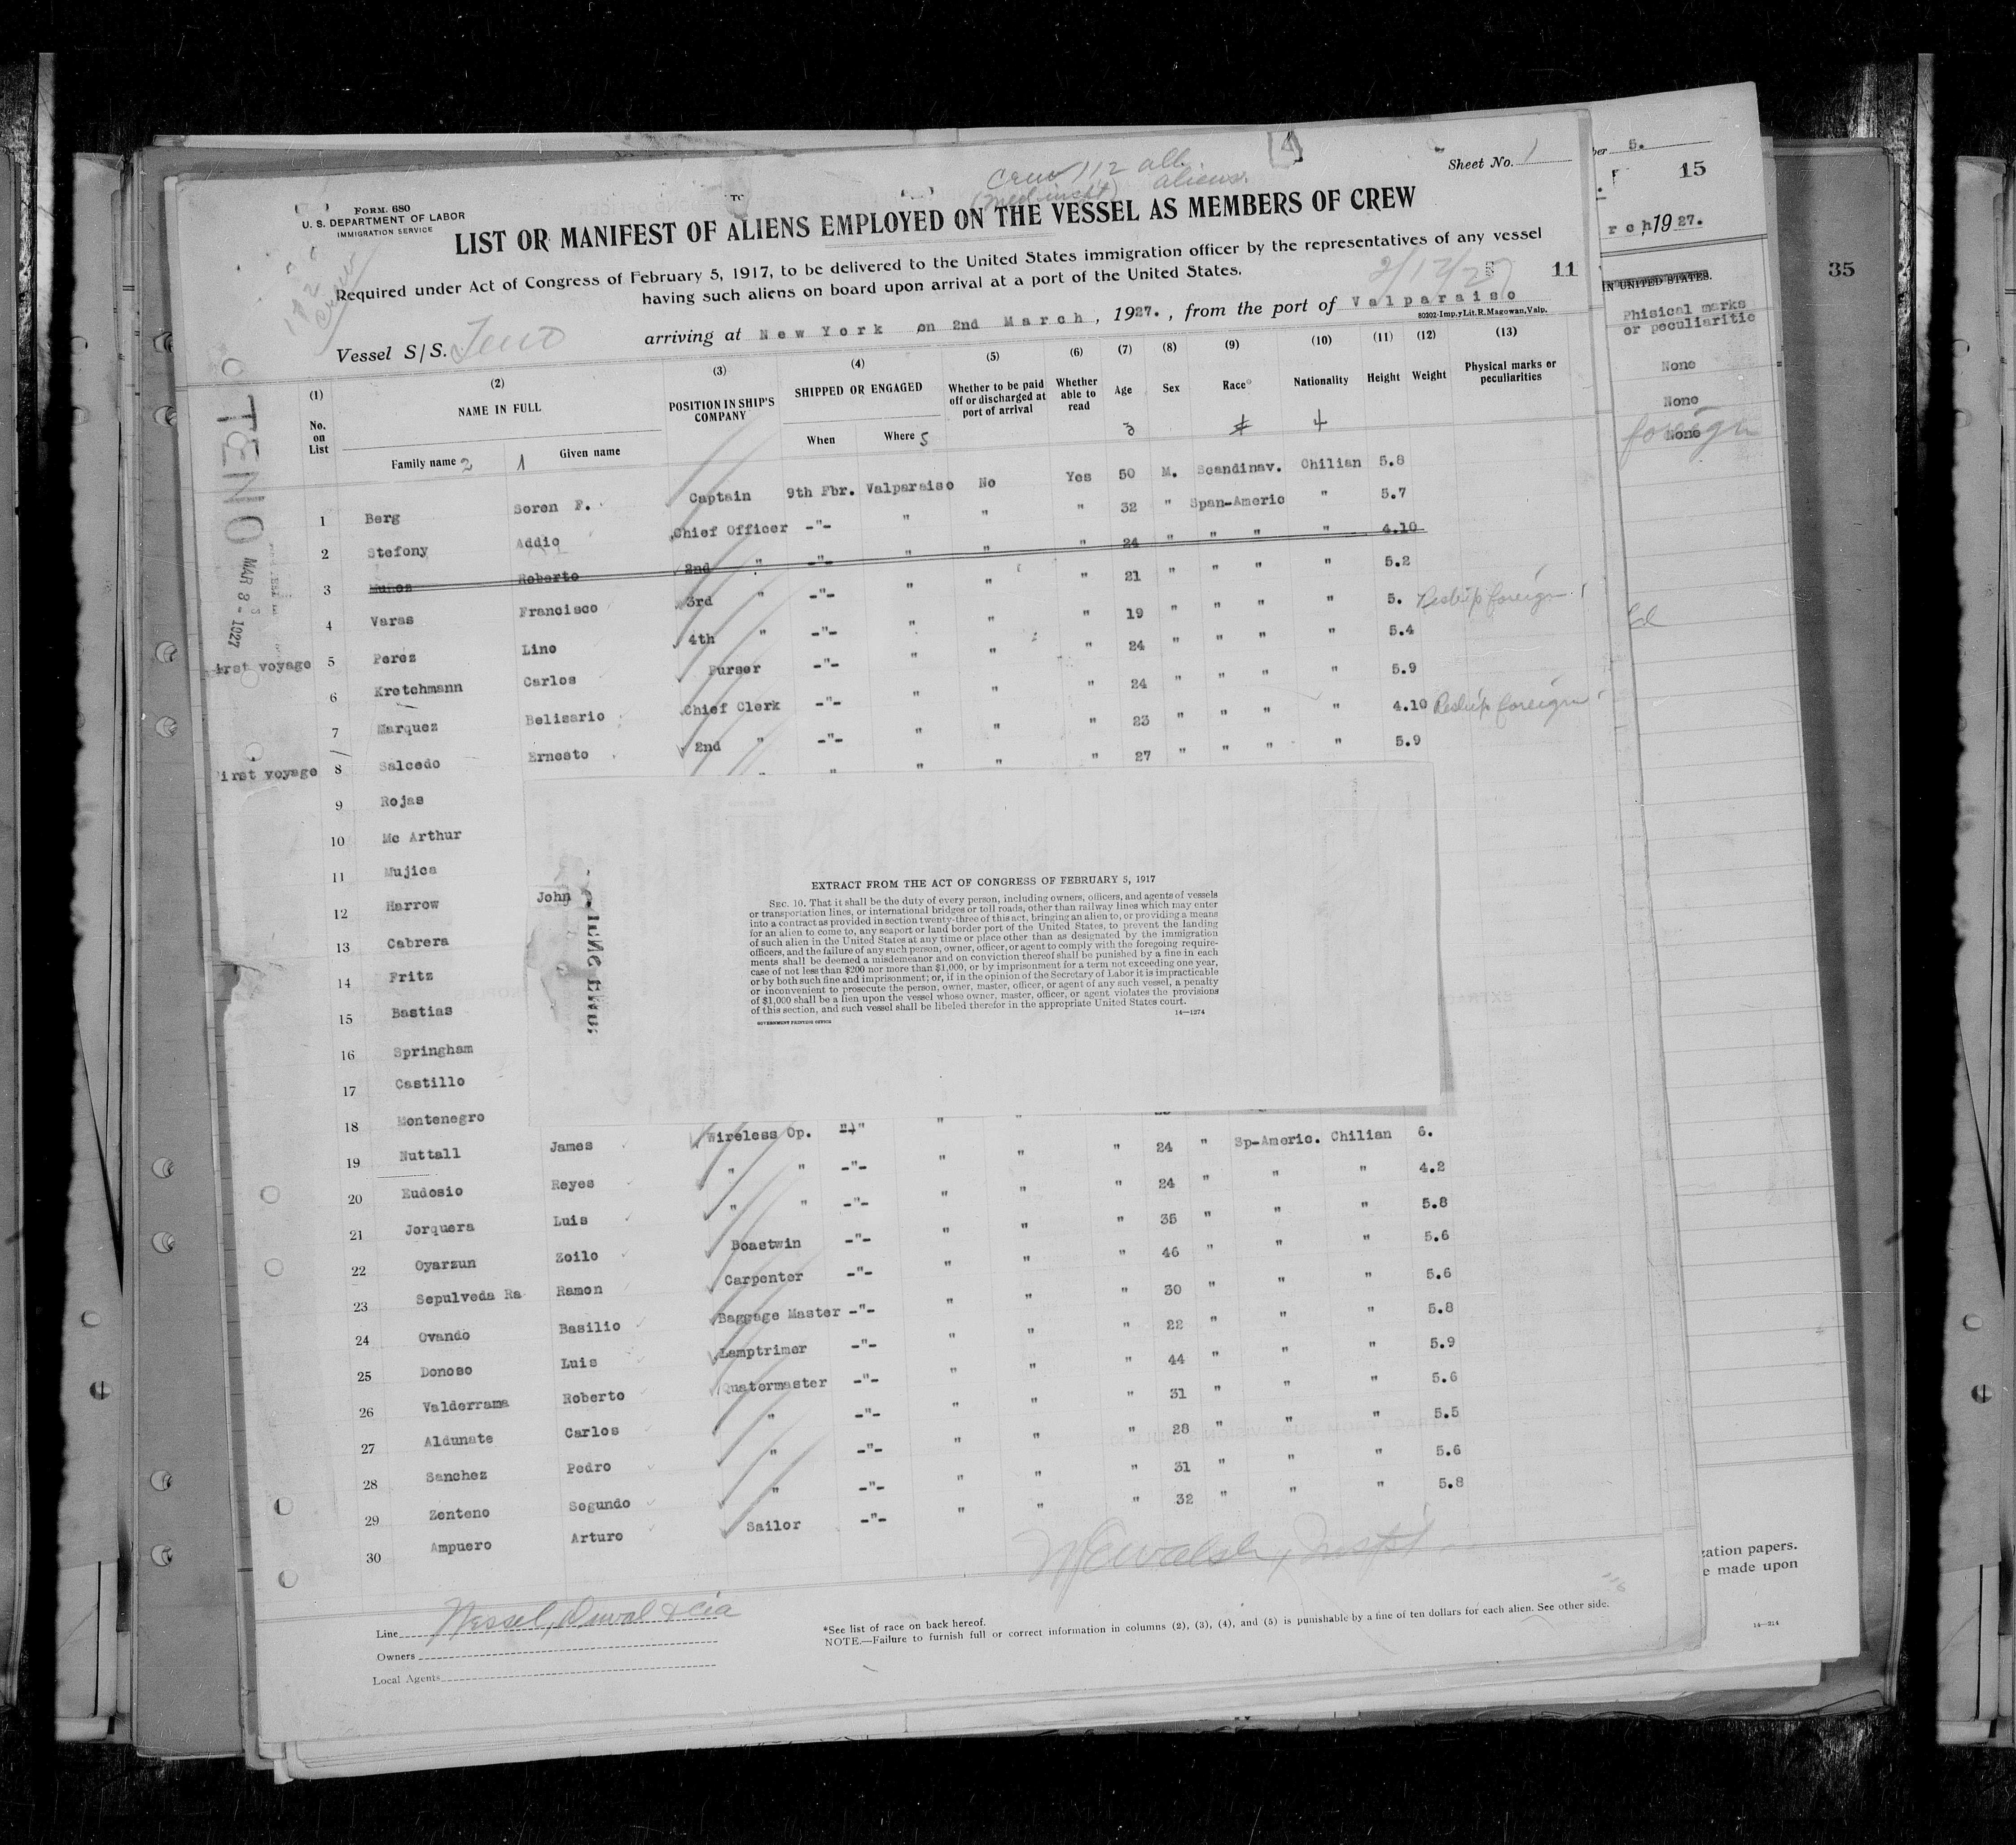 Crew 112 all
(med. insp't) aliens.
4
Sheet No. 1
FORM. 680
U. S. DEPARTMENT OF LABOR
IMMIGRATION SERVICE
LIST OR MANIFEST OF ALIENS EMPLOYED ON THE VESSEL AS MEMBERS OF CREW
Required under Act of Congress of February 5, 1917, to be delivered to the United States immigration officer by the representatives of any vessel
having such aliens on board upon arrival at a port of the United States.
11
Vessel S/S. Teno arriving at New York on 2nd March, 1927., from the port of Valparaiso
80202-Imp.yLit.R.Magowan,Valp.
(1) No. on List (2) NAME IN FULL (3) POSITION IN SHIP'S COMPANY (4) SHIPPED OR ENGAGED (5) Whether to be paid off or discharged at port of arrival (6) Whether able to read (7) Age (8) Sex (9) Race* (10) Nationality (11) Height (12) Weight (13) Physical marks or peculiarities
Family name 2 1 Given name When Where 5 3 4
TENO
MAR 3 - 1927
1 Berg Soren F. Captain 9th Fbr. Valparaiso No Yes 50 M. Scandinav. Chilian 5.8
2 Stefony Addic Chief Officer -"- " " " 32 " Span-Americ " 5.7
3 Munoz Roberto 2nd " -"- " " " 24 " " " " 4.10
4 Varas Francisco 3rd " -"- " " " 21 " " " " 5.2
First voyage 5 Perez Lino 4th " -"- " " " 19 " " " " 5. Reship foreign
6 Kretchmann Carlos Purser -"- " " " 24 " " " " 5.4
7 Marquez Belisario Chief Clerk -"- " " " 24 " " " " 5.9
First voyage 8 Salcedo Ernesto 2nd " -"- " " " 23 " " " " 4.10 Reship foreign
9 Rojas " " " " 27 " " " " 5.9
10 Mc Arthur
11 Mujica
12 Harrow John
13 Cabrera
14 Fritz
15 Bastias
16 Springham
17 Castillo
18 Montenegro
EXTRACT FROM THE ACT OF CONGRESS OF FEBRUARY 5, 1917
SEC. 10. That it shall be the duty of every person, including owners, officers, and agents of vessels
or transportation lines, or international bridges or toll roads, other than railway lines which may enter
into a contract as provided in section twenty-three of this act, bringing an alien to, or providing a means
for an alien to come to, any seaport or land border port of the United States, to prevent the landing
of such alien in the United States at any time or place other than as designated by the immigration
officers, and the failure of any such person, owner, officer, or agent to comply with the foregoing require-
ments shall be deemed a misdemeanor and on conviction thereof shall be punished by a fine in each
case of not less than $200 nor more than $1,000, or by imprisonment for a term not exceeding one year,
or by both such fine and imprisonment; or, if in the opinion of the Secretary of Labor it is impracticable
or inconvenient to prosecute the person, owner, master, officer, or agent of any such vessel, a penalty
of $1,000 shall be a lien upon the vessel whose owner, master, officer, or agent violates the provisions
of this section, and such vessel shall be libeled therefor in the appropriate United States court.
GOVERNMENT PRINTING OFFICE 14—1274
19 Nuttall James Wireless Op. "-" " " " 24 " Sp-Americ. Chilian 6.
20 Eudosio Reyes " " -"- " " " 24 " " " 4.2
21 Jorquera Luis " " -"- " " " 35 " " " 5.8
22 Oyarzun Zoilo Boastwin -"- " " " 46 " " " 5.6
23 Sepulveda Ra Ramon Carpenter -"- " " " 30 " " " 5.6
24 Ovando Basilio Baggage Master -"- " " " 22 " " " 5.8
25 Donoso Luis Lamptrimer -"- " " " 44 " " " 5.9
26 Valderrama Roberto Quatermaster -"- " " " 31 " " " 5.6
27 Aldunate Carlos " -"- " " " 28 " " " 5.5
28 Sanchez Pedro " -"- " " " 31 " " " 5.6
29 Zenteno Segundo " -"- " " " 32 " " " 5.8
30 Ampuero Arturo Sailor -"- " "
Line Wessel, Duval & Cia
Owners
Local Agents
*See list of race on back hereof.
NOTE.—Failure to furnish full or correct information in columns (2), (3), (4), and (5) is punishable by a fine of ten dollars for each alien. See other side.
ber 5.
15
rch, 1927.
IN UNITED STATES.
Phisical marks
or peculiaritie
None
None
None
foreign
35
zation papers.
e made upon
14—214